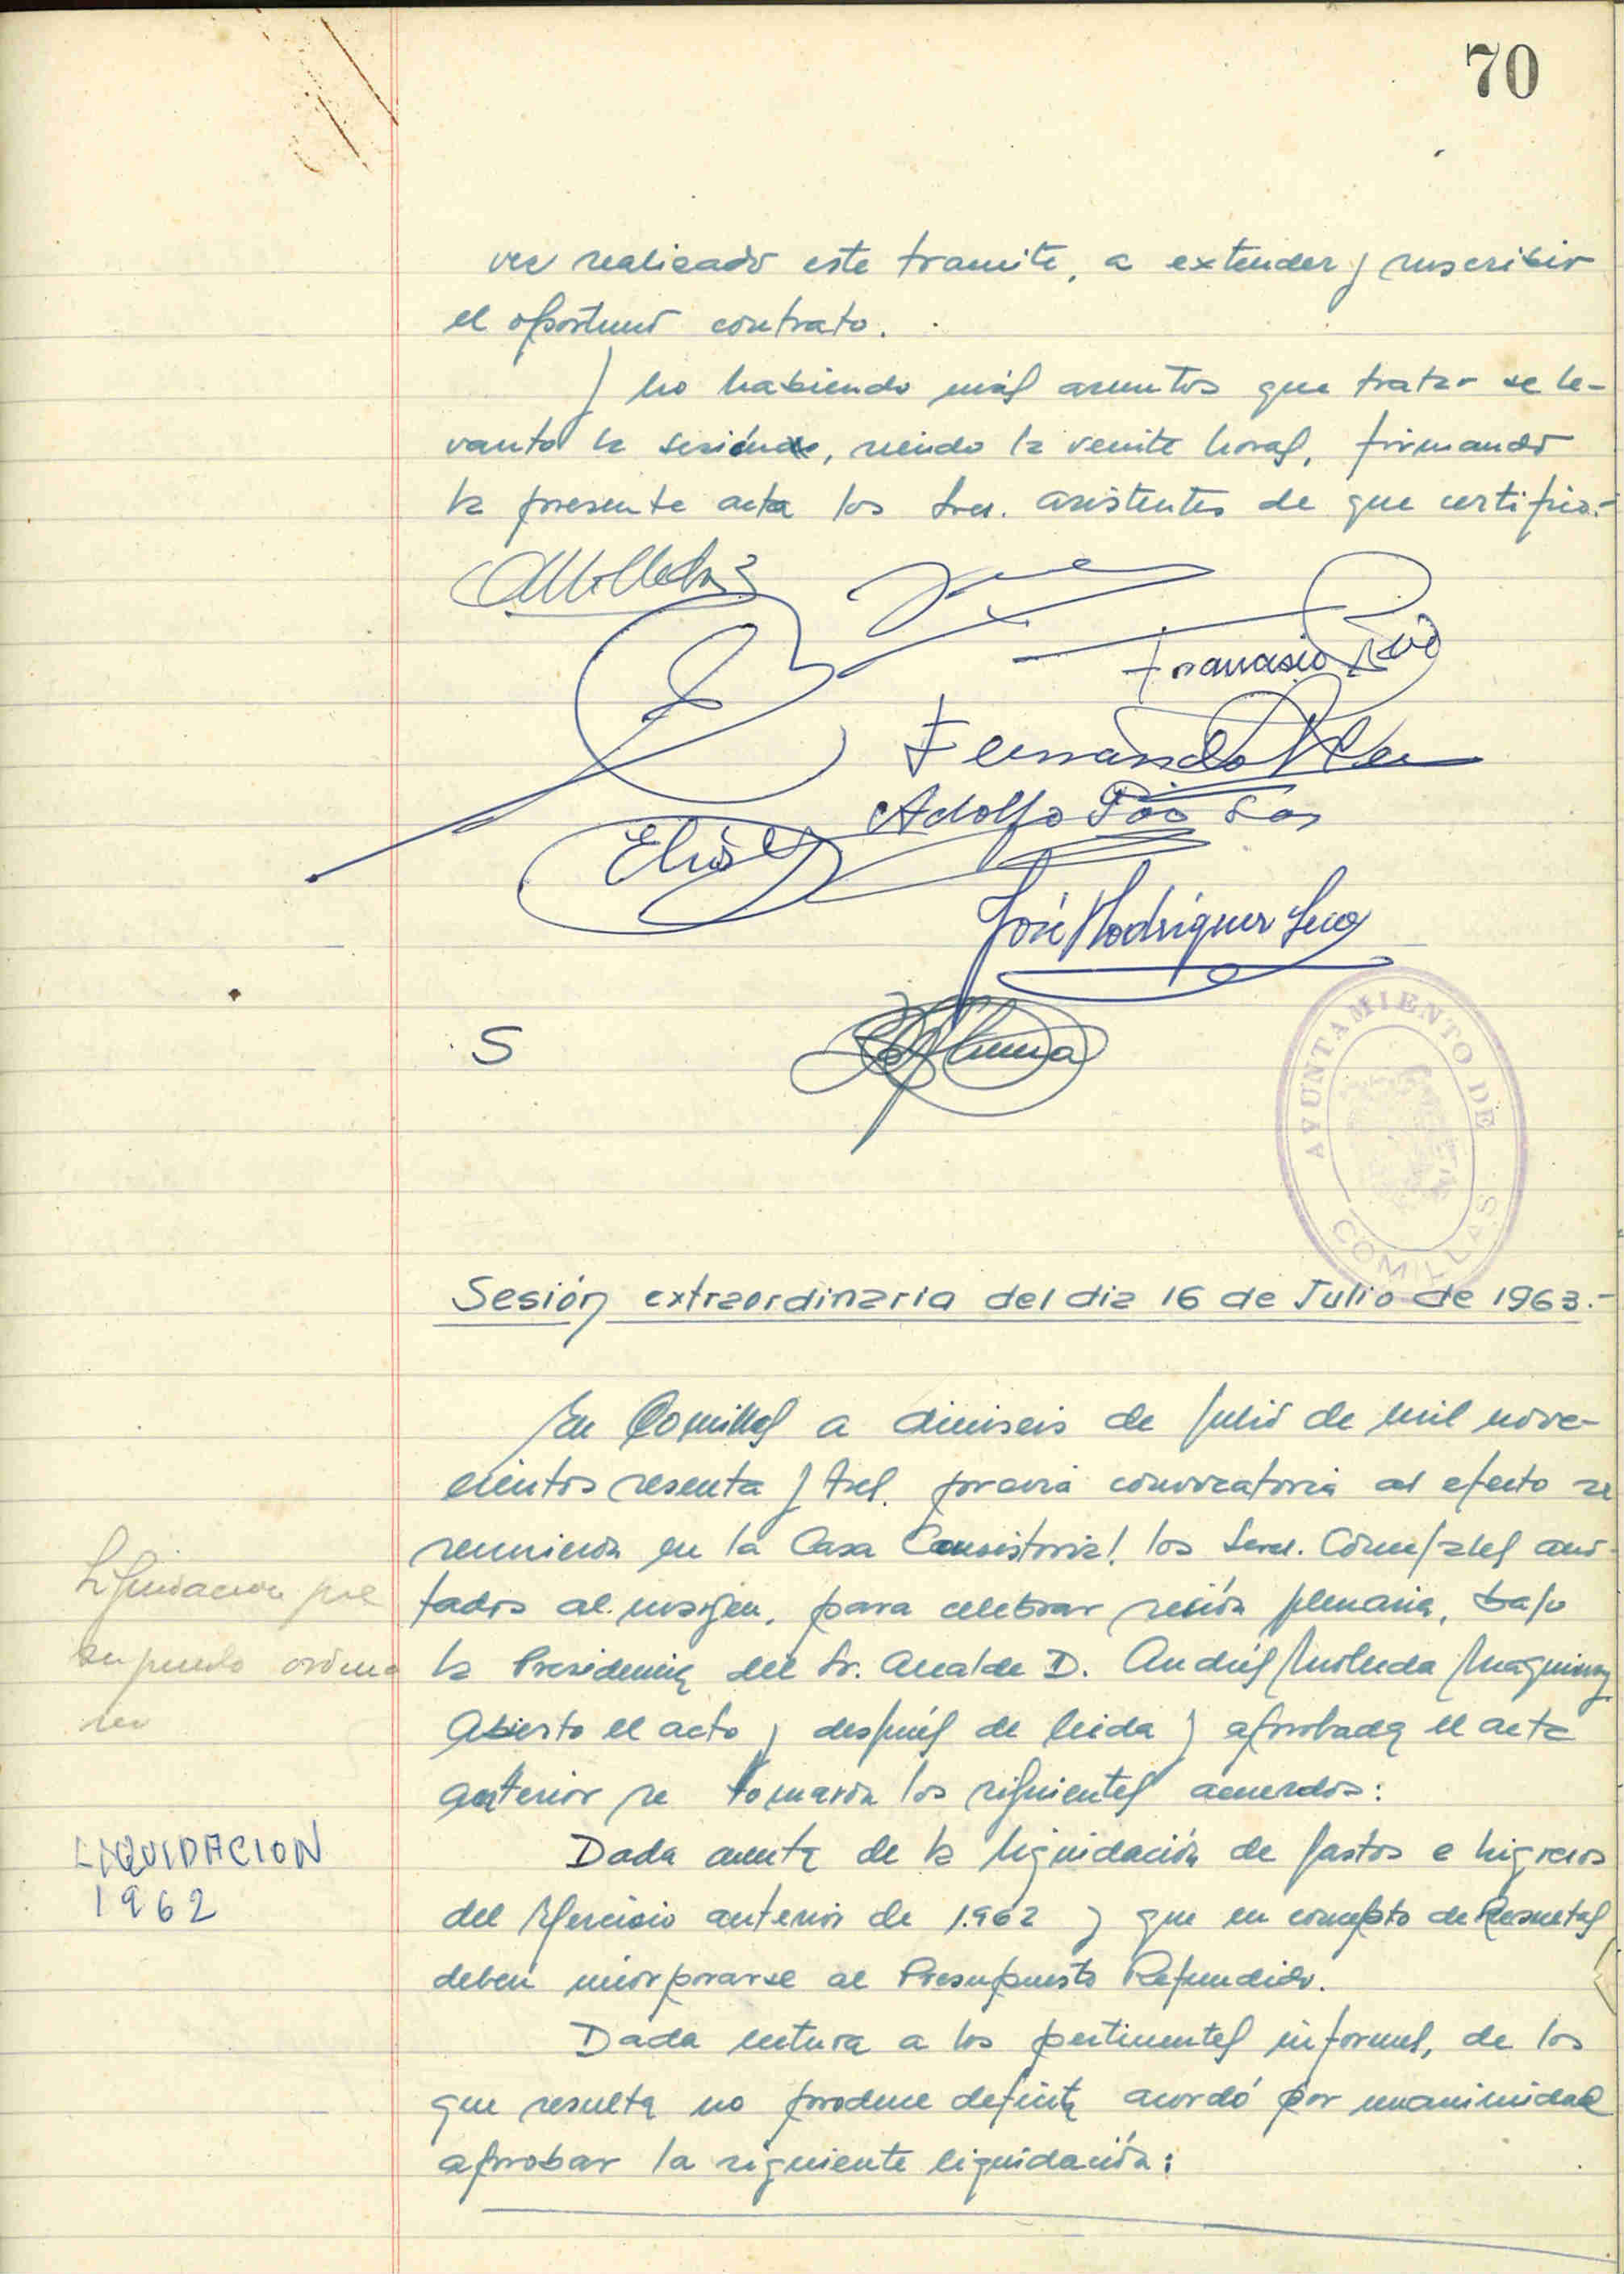 70
vez realizado este tramite, a extender y suscribir
el oportuno contrato.
Y no habiendo más asuntos que tratar se le-
vantó la sesión, siendo la veinte horas, firmando
la presente acta los Sres. asistentes de que certifico.-
Francisco
Fernando
Adolfo
Elías
José Rodríguez
S
AYUNTAMIENTO DE
COMILLAS
Sesión extraordinaria del dia 16 de Julio de 1963.-
En Comillas a dieciseis de Julio de mil nove-
cientos sesenta y tres. previa convocatoria al efecto se
reunieron en la Casa Consistorial. los Sres. Concejales ano-
tados al margen, para celebrar sesión plenaria, bajo
la Presidencia del Sr. Alcalde D. Andrés Molleda
Abierto el acto y después de leida y aprobada el acta
anterior se tomaron los siguientes acuerdos:
Liquidacion pre
supuesto ordina
rio
LIQUIDACION
1962
Dada cuenta de la liquidación de gastos e ingresos
del Ejercicio anterior de 1.962 y que en concepto de Resultas
deben incorporarse al Presupuesto Refundido.
Dada lectura a los pertinentes informes, de los
que resulta no produce deficit acordó por unanimidad
aprobar la siguiente liquidación: